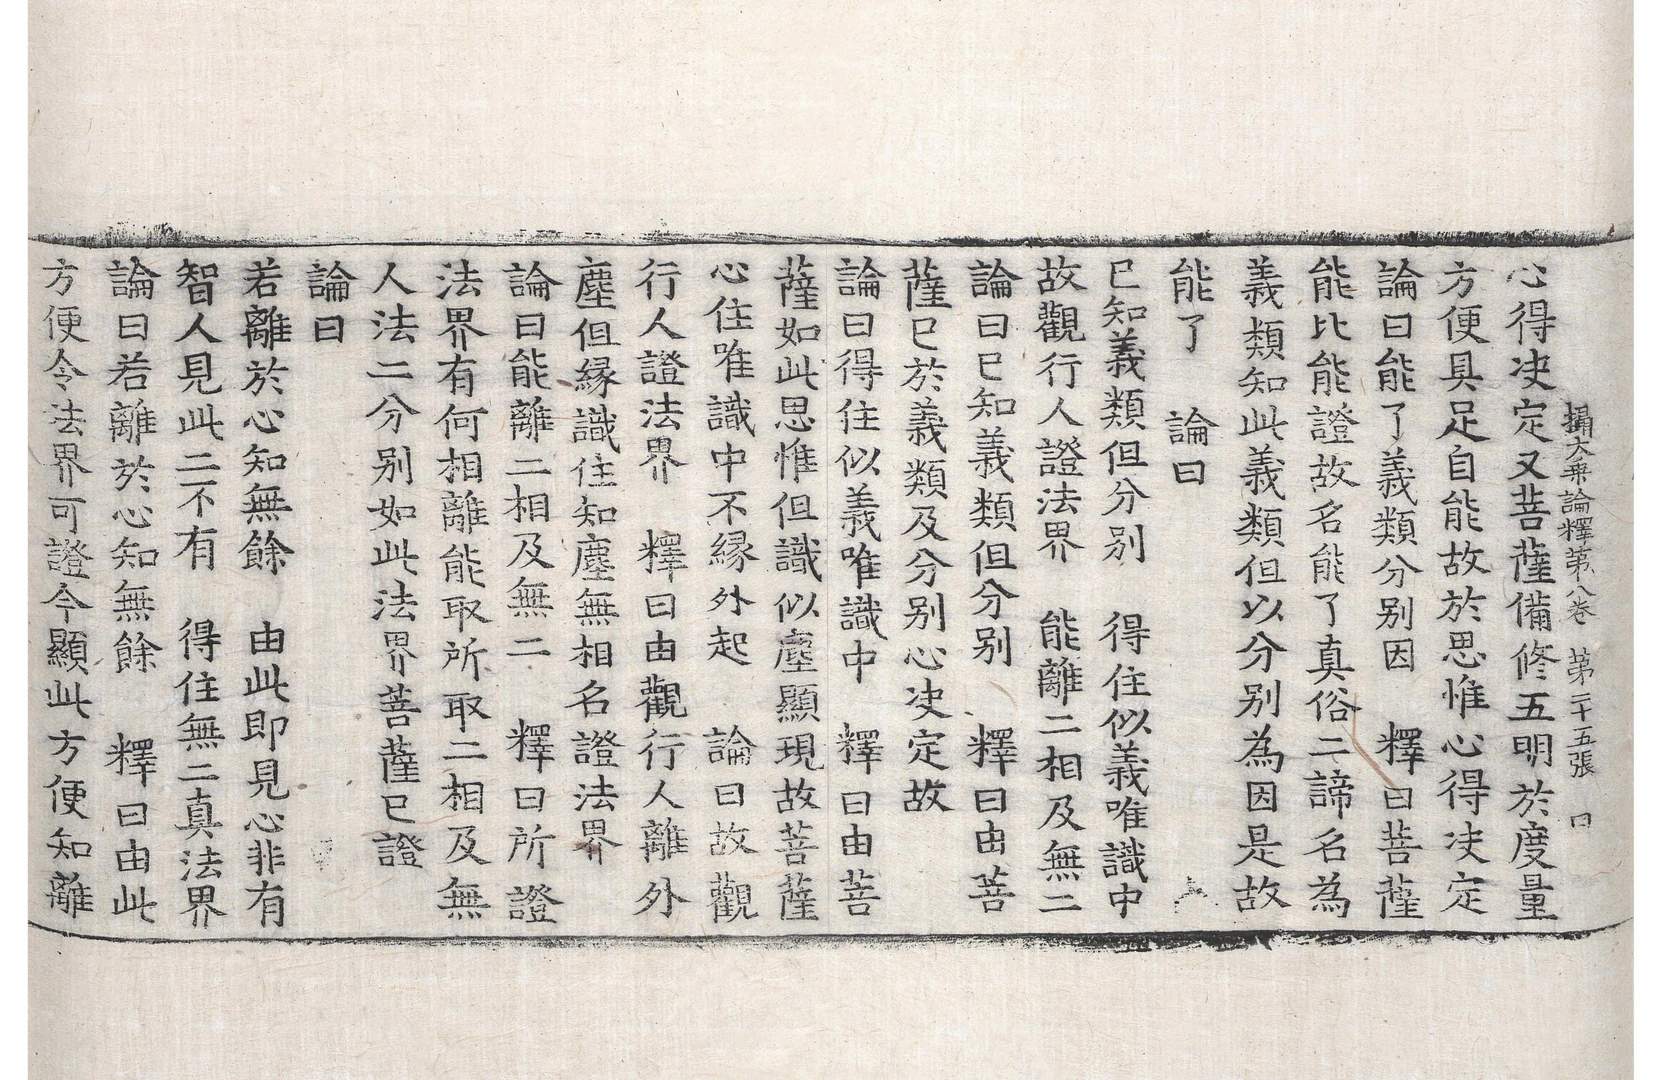 攝大乘論釋第八卷 第二十五張 曰
心得决定又菩薩備修五明於度量
方便具足自能故於思惟心得决定
論曰能了義類分別因 釋曰菩薩
能比能證故名能了真俗二諦名為
義類知此義類但以分别為因是故
能了 論曰
已知義類但分別 得住似義唯識中
故觀行人證法界 能離二相及無二
論曰已知義類但分别 釋曰由菩
薩已於義類及分别心决定故
論曰得住似義唯識中 釋曰由菩
薩如此思惟但識似塵顯現故菩薩
心住唯識中不縁外起 論曰故觀
行人證法界 釋曰由觀行人離外
塵但縁識住知塵無相名證法界
論曰能離二相及無二 釋曰所證
法界有何相離能取所取二相及無
人法二分别如此法界菩薩已證
論曰
若離於心知無餘 由此即見心非有
智人見此二不有 得住無二真法界
論曰若離於心知無餘 釋曰由此
方便令法界可證今顯此方便知離